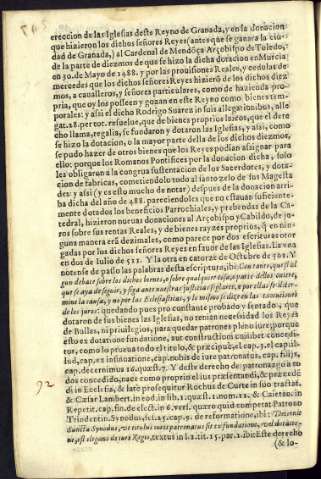 ereccion de las Iglesias deste Reyno de Granada, y en la donacion
que hizieron los dichos señores Reyes (antes que se ganara la ciu-
dad de Granada,) al Cardenal de Mendoça Arçobispo de Toledo,
de la parte de diezmos de que se hizo la dicha donacion en Murcia
en 30. de Mayo de 1488. y por las prouisiones Reales, y cedulas de
mercedes que los dichos señores Reyes hizierõ de los dichos diez-
mos, a caualleros, y señores particulares, como de hazienda pro-
pria, que oy los posseen y gozan en este Reyno como bienes tem-
porales: y assi el dicho Rodrigo Suarez in suis allegationibus, alle
gat. 28. per tot. resuelue, que de bienes proprios laicos, que el dere
cho llama, regalia, se fundaron y dotaron las Iglesias, y assi, como
se hizo la dotacion, o la mayor parte della de los dichos diezmos,
se pudo hazer de otros bienes que los Reyes podian asignar para
ello: porque los Romanos Pontifices por la donacion dicha, solo
les obligaron a la congrua sustentacion de los Sacerdotes, y dota-
cion de fabricas, cometiendolo todo al santo zelo de sus Magesta
des: y assi (y es esto mucho de notar) despues de la donacion arri
ba dicha del año de 488. pareciendoles que no estauan suficiente-
mente dotados los beneficios Parrochiales, y prebendas de la Ca-
tedral, hizieron nueuas donaciones al Arçobispo y Cabildo, de ju-
ros sobre sus rentas Reales, y de bienes rayzes proprios, q̃ en nin-
guna manera erã dezimales, como parece por dos escrituras otor
gadas por los dichos señores Reyes en fauor de las Iglesias. La vna
en dos de Iulio de 511. Y la otra en catorze de Octubre de
notense de passo las palabras desta escritura, ibi:
gun debate sobre los dichos bienes, o sobre qualquier cosa, o parte dellos
que se aya de seguir, y siga ante nuestras justicias seglares, e por ellas se deter-
mine la causa, y no por las Eclesiasticas, y lo mismo se dize en las
de los juros: quedando pues por constante probado y sentado, que
dotaron de sus bienes las Iglesias, no tenian necessidad los Reyes
de Bullas, ni priuilegios, para quedar patrones pleno iure; porque
esto ex dotatione fundatione, aut constructione consiguen,
tur, como lo prueua todo el titulo, & præcipuè, el cap. 3. el capit.
lud, cap. ex insinuatione, cap. nobis de iure patronatus, cap. filijs,
cap. decernimus 16. quæst. 7. Y deste derecho de patronazgo a to
dos concedido, nace como proprio el ius præsentandi, & præcedẽ
di in Ecclesia, & latè prosequitur Rochus de Curte in suo tractat.
& Cæsar Lambert. in eod. in lib. 1. quæst. 1. num. 22. & Caietan. in
Repetit. cap. fin. de elect. in 6. vers. quarto quid competat Patron
Tridentin. Synodus, sess. 25. cap. 9. de reformatione, ibi:
Sancta Synodus,
textus in l. 2. tit. 15. par. 1. ibi: Este derecho
(& lo-
92